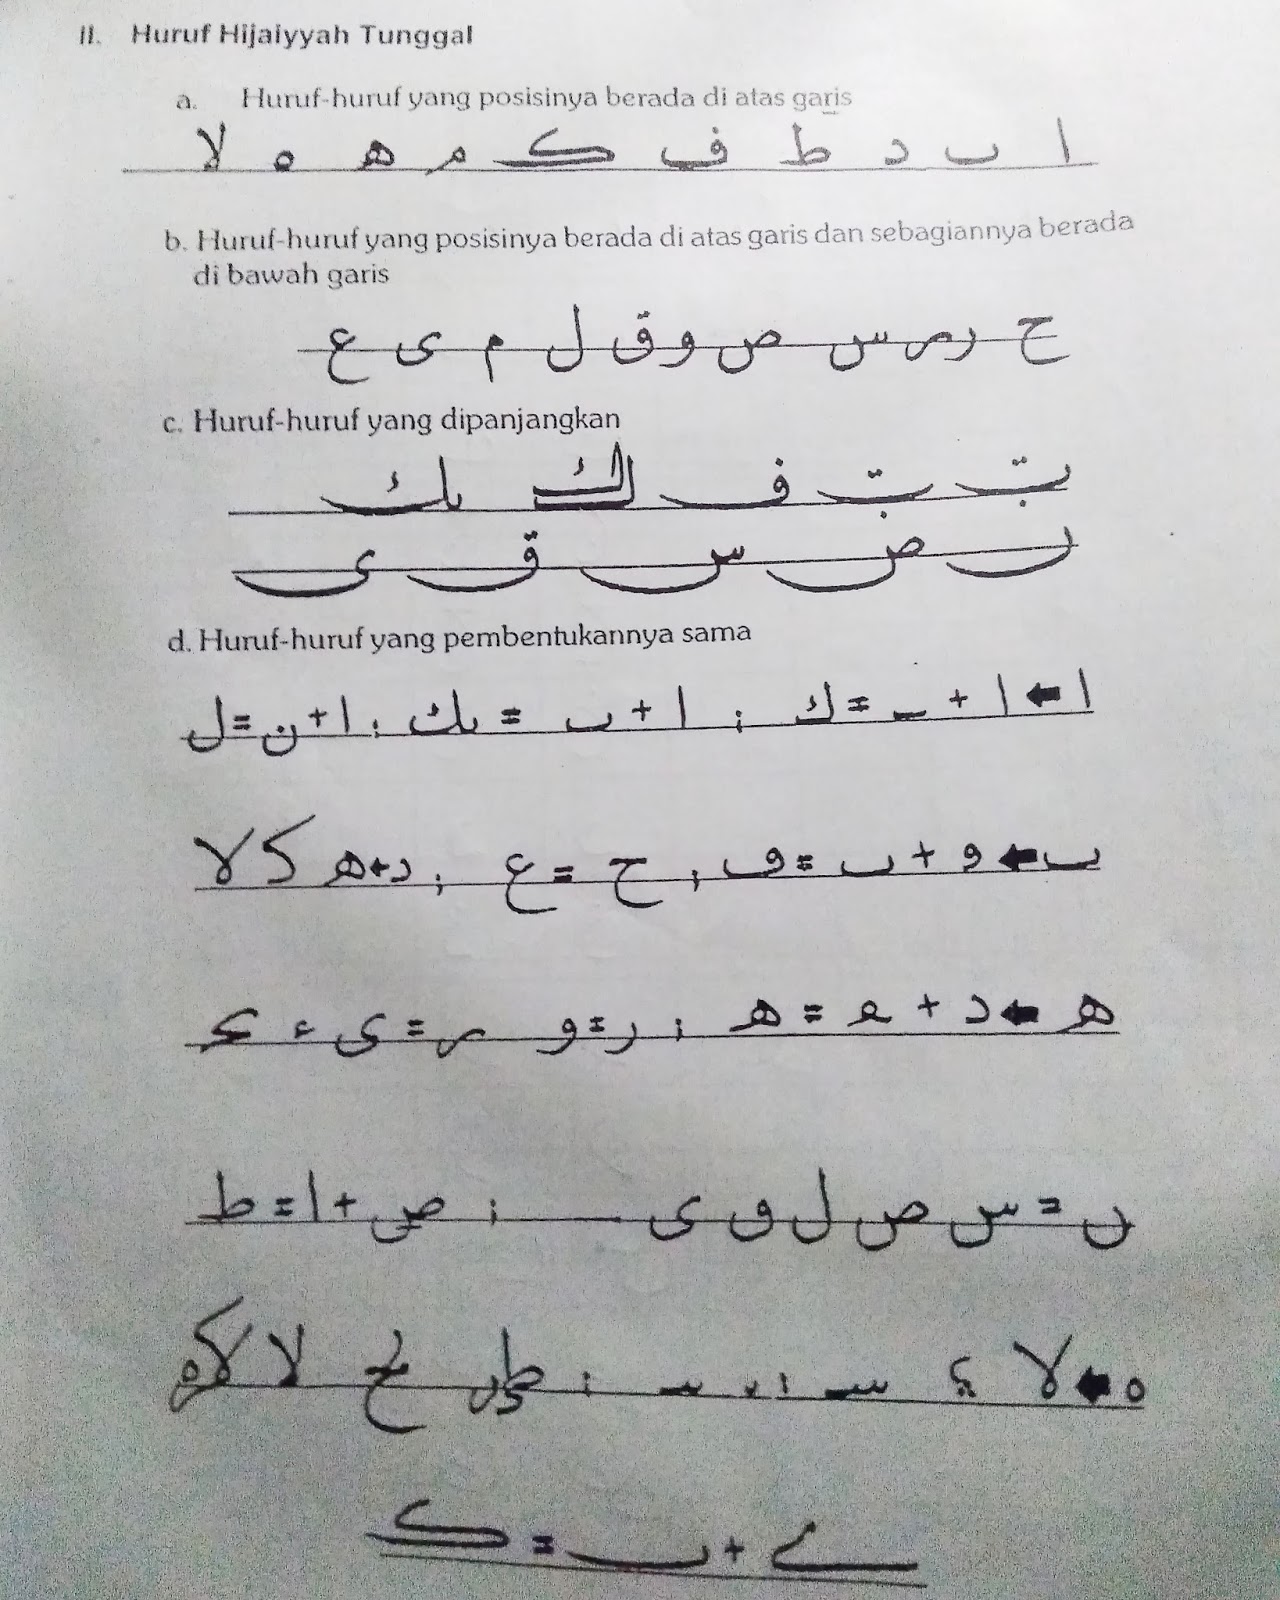 II. Huruf Hijaiyyah Tunggal
a. Huruf-huruf yang posisinya berada di atas garis
ا ب د ط ف ک م ھ ه لا
b. Huruf-huruf yang posisinya berada di atas garis dan sebagiannya berada
di bawah garis
ح ر س ص و ق ل م ى ع
c. Huruf-huruf yang dipanjangkan
ف ك
ص س ق ى
d. Huruf-huruf yang pembentukannya sama
ا ← ا + = ك ; ا + ٮ = ; ا + ن = ل
ٮ ← و + ٮ = ف ; ح = ع ; د ← ھ لا
ھ ← د + = ھ ; ر = و = ى ء
ں = س ص ل و ى ; ص + ا = ط
ه ← لا
+ ٮ = ک